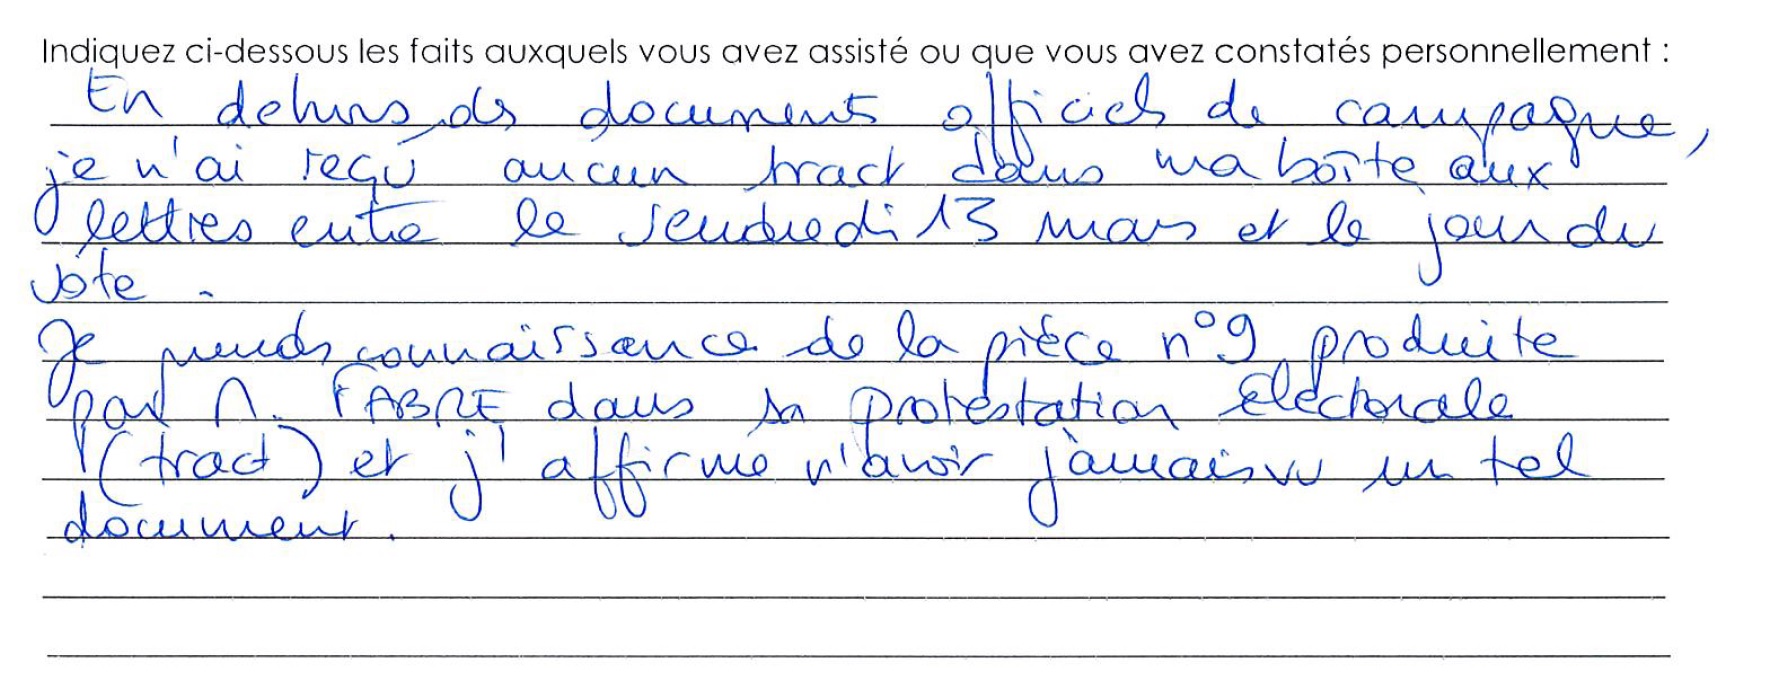 Indiquez ci-dessous les faits auxquels vous avez assisté ou que vous avez constatés personnellement :
En dehors des documents officiels de campagne,
je n'ai reçu aucun tract dans ma boîte aux
lettres entre le vendredi 13 mars et le jour du
vote.
Je prends connaissance de la pièce n°9 produite
par M. FABRE dans sa protestation électorale
(tract) et j'affirme n'avoir jamais vu un tel
document.